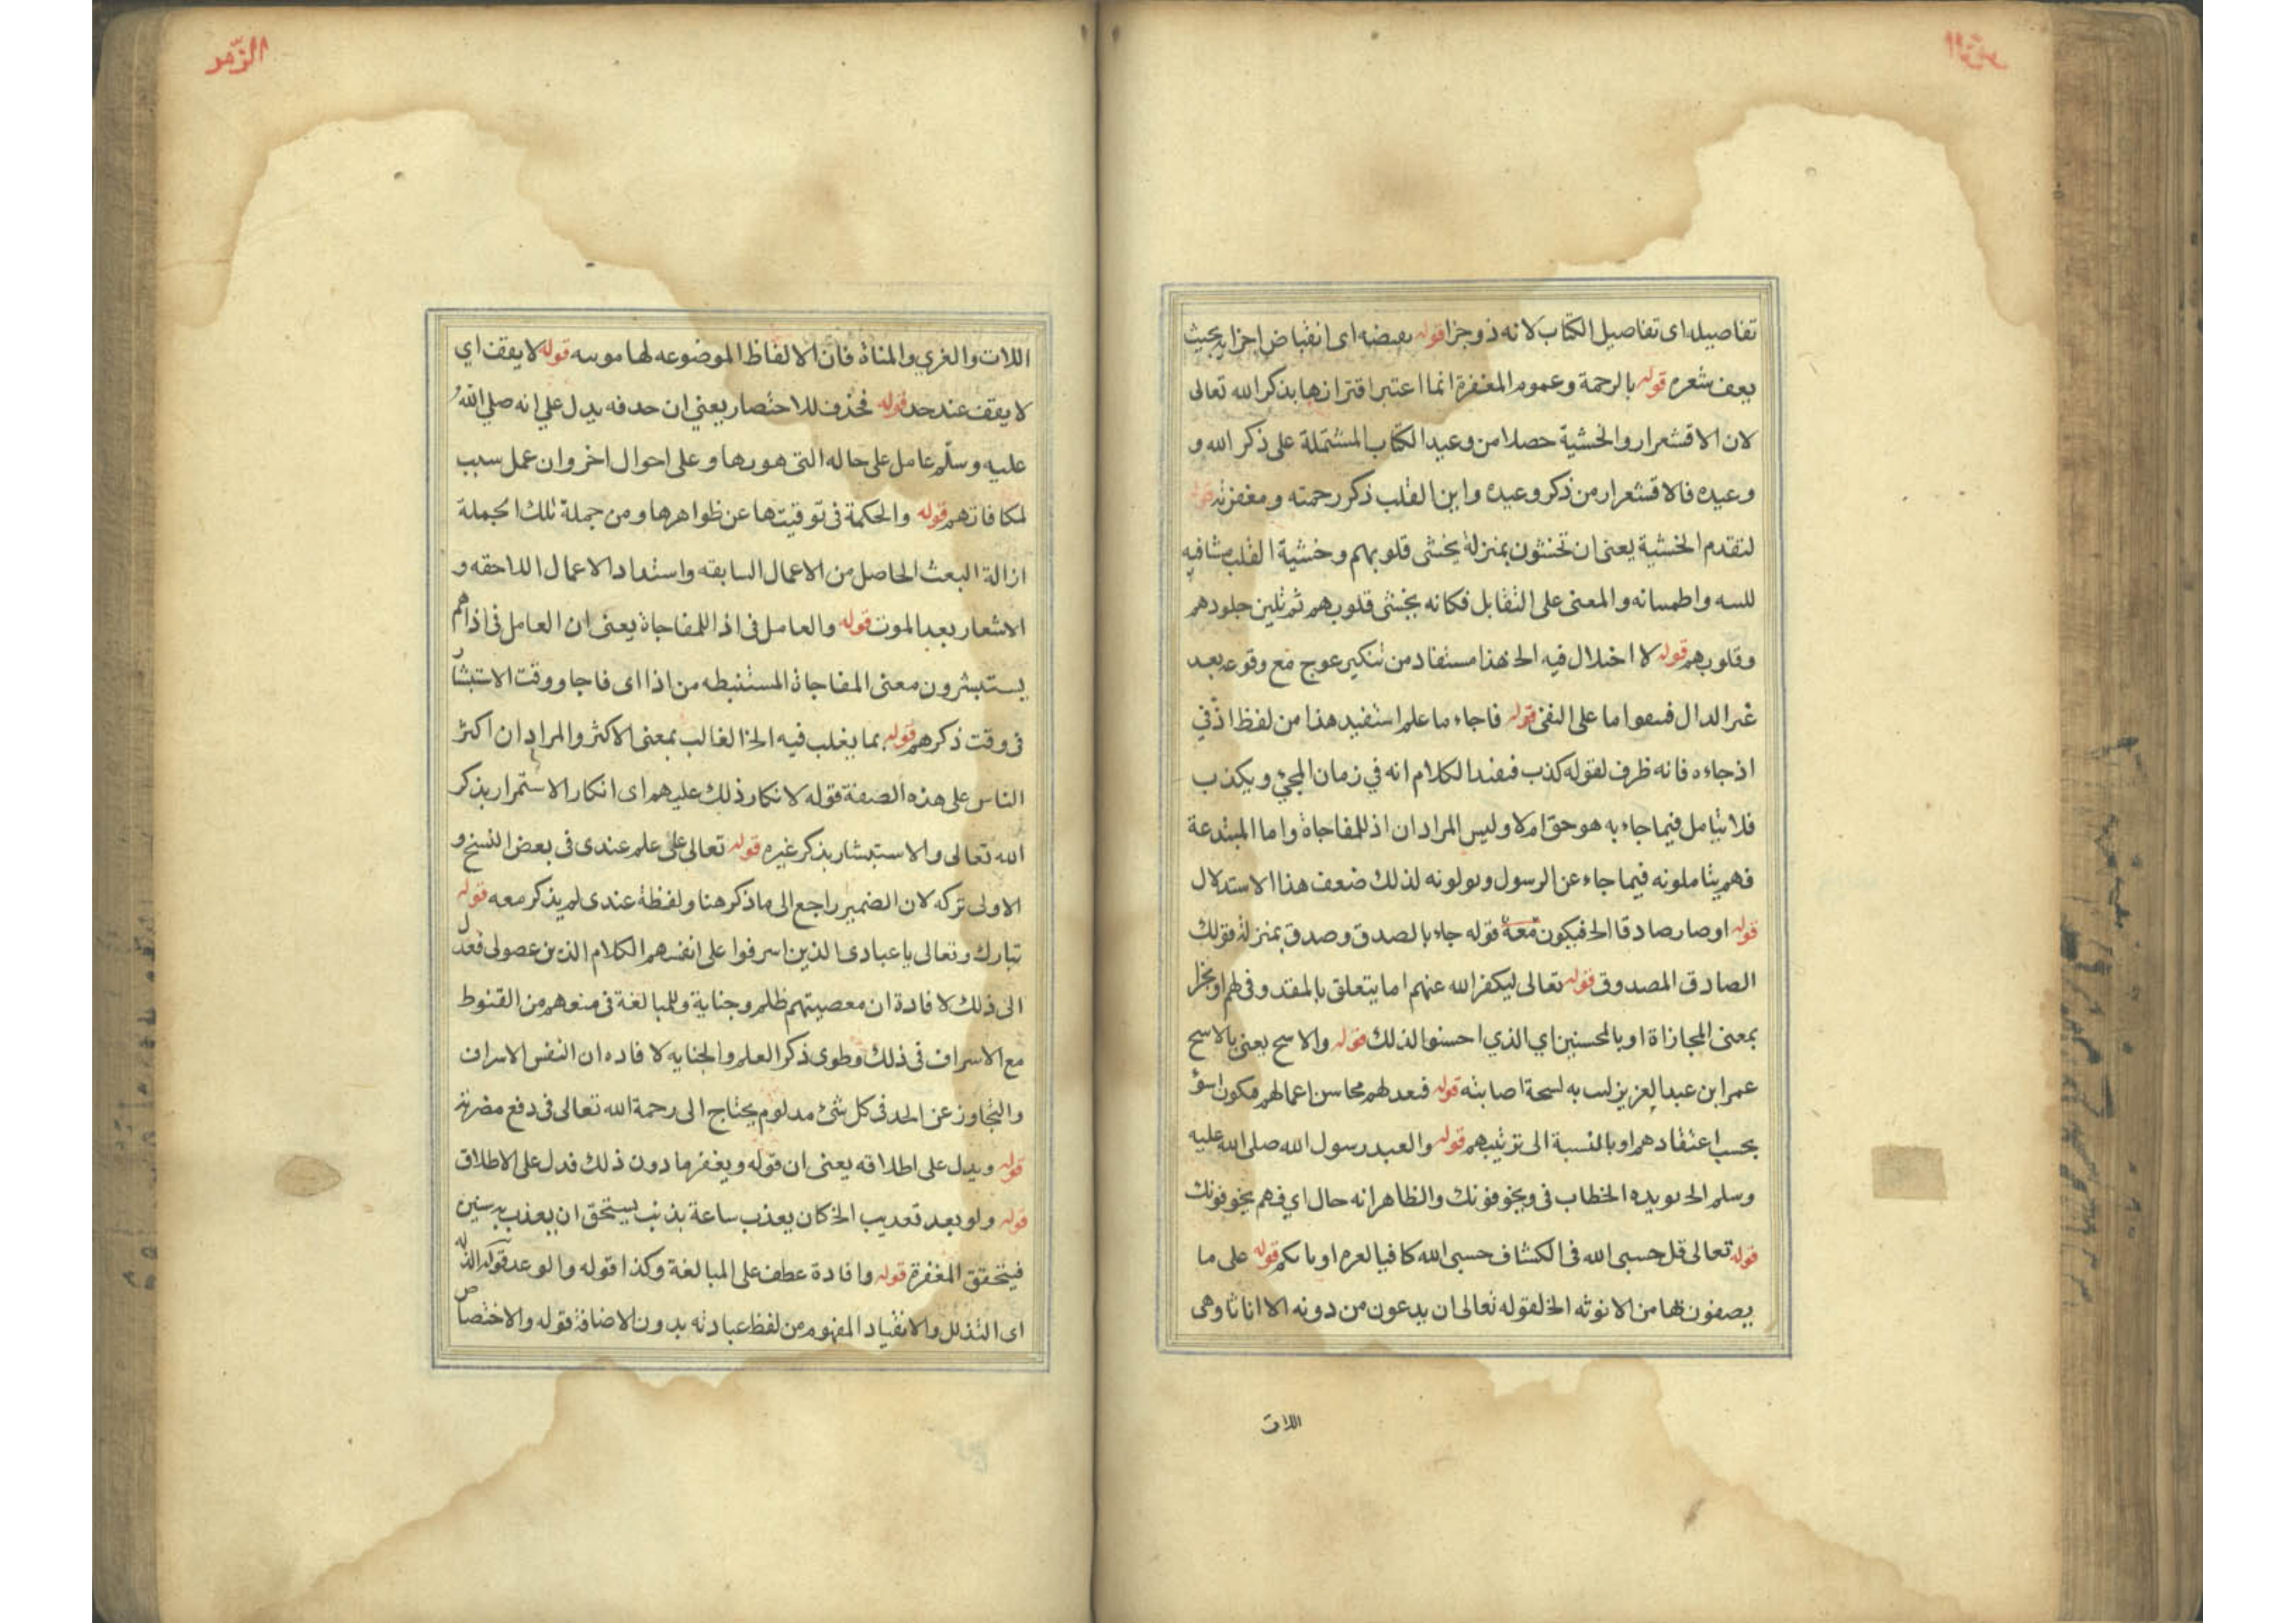 تفاصيله اى تفاصيل الكتاب لانه ذو جزا قوله بقبضه اى انقباض اجزايه بحيث
يعف شعره قوله بالرحمة وعموم المغفرة انما اعتبر اقترانها بذكر الله تعالى
لان الاقشعرار والخشية حصلا من وعيد الكتاب المشتملة على ذكر الله و
وعيده فالاقشعرار من ذكر وعيده واين القلب ذكر رحمته ومغفرته قوله
لتقدم الخشية يعنى ان تخشون بمنزلة يخشى قلوبهم وخشية القلب
واطمسانه والمعنى على التقابل فكانه يخشى قلوبهم ثم تلين جلودهم
وقلوبهم قوله لا اختلال فيه الخ هذا مستفاد من تنكير عوج مع وقوعه بعد
غير الدال على النفى قوله فاجاء ما علم استفيد هذا من لفظ اذ في
اذ جاءه فانه ظرف لقوله كذب الكلام انه في زمان المجئ ويكذب
فلا يتامل فيما جاء به هو حق ام لا وليس المراد ان اذ للمفاجاة واما المبتدعة
فهم يتاملونه فيما جاء عن الرسول ويولونه لذلك ضعف هذا الاستدلال
قوله او صار صادقا الخ فيكون معه قوله جاء بالصدق وصدق بمنزلة قولك
الصادق المصدوق قوله تعالى ليكفر الله عنهم اما يتعلق بالمقدر فى لهم او بجزا
بمعنى المجازاة او بالمحسنين اي الذي احسنوا لذلك قوله والاسح يعنى بالاسح
عمر ابن عبد العزيز به لسحة اصابته قوله فيعد لهم محاسن اعمالهم فكون اسوٴ
بحسب اعتقادهم او بالنسبة الى ترتيبهم قوله والعبد رسول الله صلى الله عليه
وسلم الخ يويده الخطاب فى ويخوفونك والظاهر انه حال اي فهم يخوفونك
قوله تعالى قل حسبى الله فى الكشاف حسبى الله كافيا قوله على ما
يصفونها من الانوثه الخ لقوله تعالى ان يدعون من دونه الا اناثا وهى
اللات
الزمر
اللات والغري والمناة فان الالفاظ الموضوعه لها موسه قوله لا يقف اي
لا يقف عند حد قوله فحذف للاختصار يعني ان حدفه يدل علي انه صلي الله
عليه وسلم عامل على حاله التى هو بها وعلى احوال اخر وان عمل سبب
لمكافاتهم قوله والحكمة فى توقيتها عن ظواهرها ومن جملة تلك الجملة
ازالة البعث الحاصل من الاعمال السابقه واستداد الاعمال اللاحقه و
الاشعار بعد الموت قوله والعامل فى اذا للمفاجاة يعنى ان العامل فى اذا هم
يستبشرون معنى المفاجاة المستنبطه من اذا اى فاجاو وقت الاستبشار
فى وقت ذكرهم قوله بما يغلب فيه الخ الغالب بمعنى الاكثر والمراد ان اكثر
الناس على هذه الصفة قوله لانكار ذلك عليهم اى انكار الاستمرار بذكر
الله تعالى والاستبشار بذكر غيره قوله تعالى على علم عندى فى بعض النسخ و
الاولى تركه لان الضمير راجع الى ما ذكر هنا ولفظة عندى لم يذكر معه قوله
تبارك وتعالى يا عبادى الذين اسرفوا على انفسهم الكلام الذين عصونى فعدل
الى ذلك لافادة ان معصيتهم ظلم وجناية وللمبالغة فى منعوهم من القنوط
مع الاسراف فى ذلك وطوى ذكر العلم والجنايه لافاده ان النفس الاسراف
والتجاوز عن الحد فى كل شئ مدلوم يحتاج الى رحمة الله تعالى فى دفع مضرته
قوله ويدل على اطلاقه يعنى ان قوله ويغفر ما دون ذلك فدل على الاطلاق
قوله ولو بعد تعديب الخ كان يعذب ساعة بذنب يستحق ان يعذب به سنين
فيتحقق المغفرة قوله وافادة عطف على المبالغة وكذا قوله والوعد قوله الذله
اى التذلل والانقياد المفهوم من لفظ عبادته بدون الاضافة قوله والاختصاص